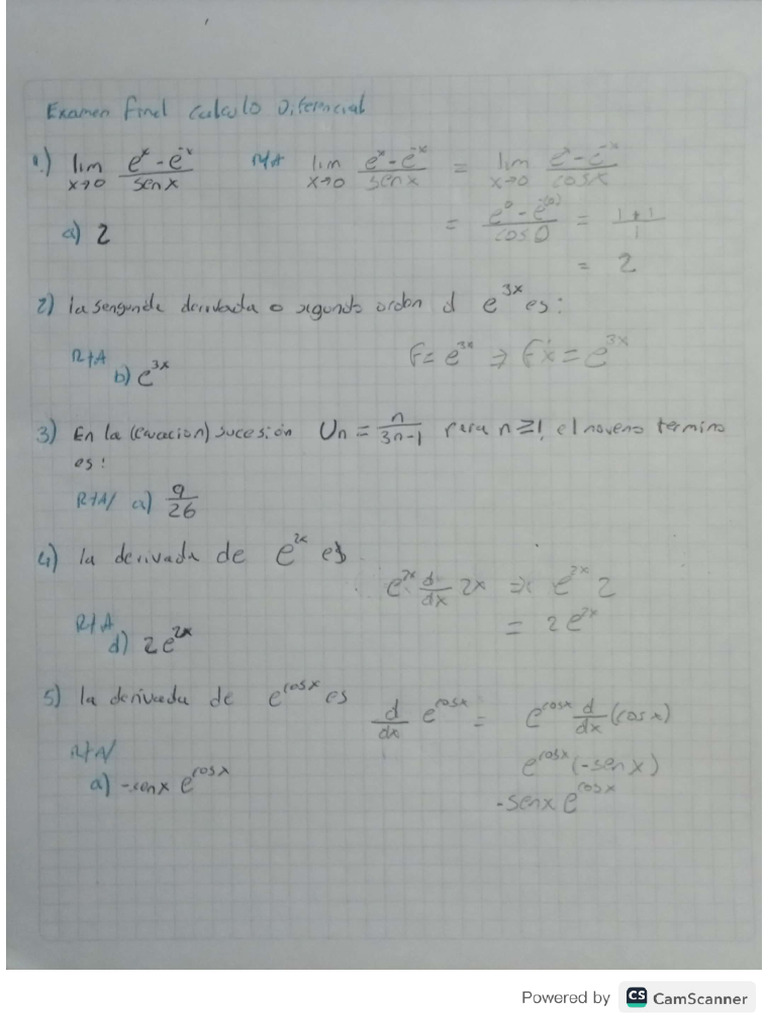 Examen Final Calculo Diferencial
1.) lim x→0 (e^x - e^-x)/(sen x) R/A lim x→0 (e^x - e^-x)/(sen x) = lim x→0 (e^x - e^-x)/(cos x)
a) 2 = (e^0 - e^-(0))/(cos 0) = (1+1)/1
= 2
2) la sengunda derivada o segundo orden d e^3x es:
R+A b) e^3x F= e^3x ⇒ F'x = e^3x
3) En la (Ecuacion) sucesión Un = n/(3n-1) para n≥1, el noveno termino
es:
R+A/ a) 9/26
4) la derivada de e^2x es
e^2x d/dx 2x ⇒ e^2x 2
= 2e^2x
R/A d) 2e^2x
5) la derivada de e^cosx es
d/dx e^cosx = e^cosx d/dx (cos x)
R+A/ e^cosx (-sen x)
a) -senx e^cosx -senx e^cosx
Powered by CS CamScanner